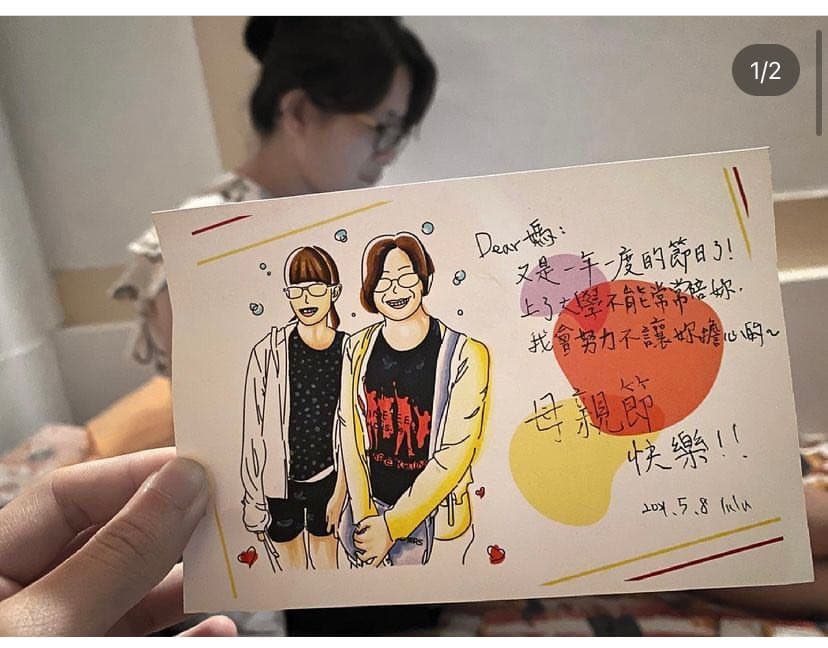 1/2
Dear 媽:
又是一年一度的節日了!
上了大學不能常常陪妳.
我會努力不讓妳擔心的~
母親節
快樂!!
5.8 lulu